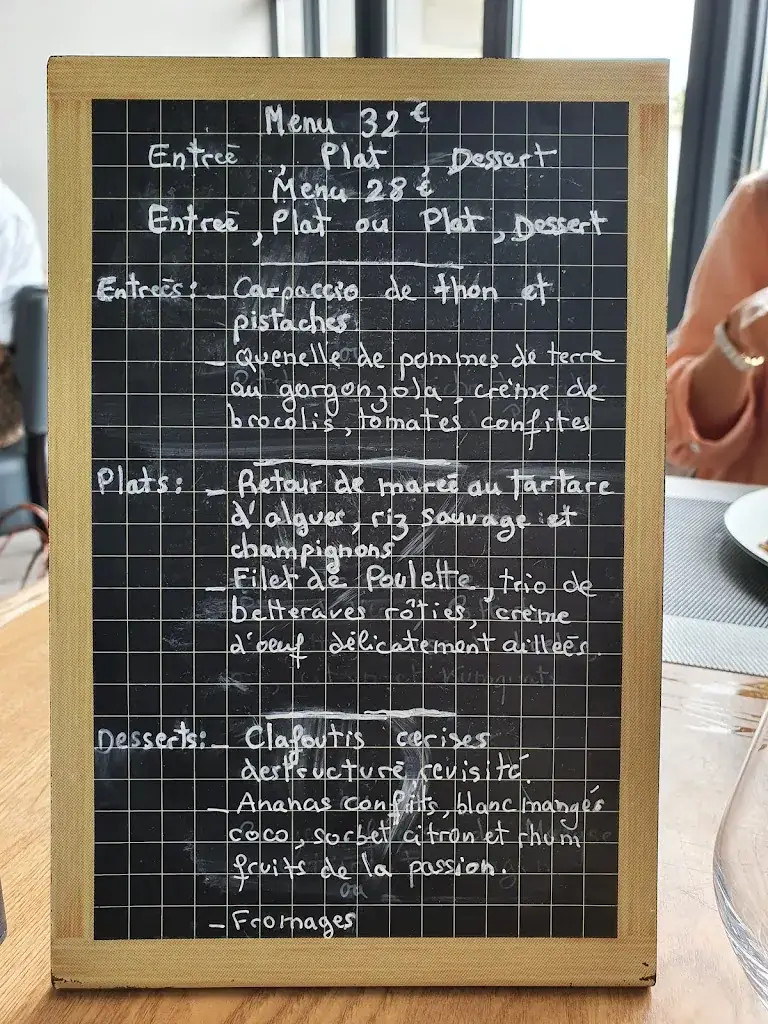 Menu 32€
Entreé, Plat, Dessert
Menu 28€
Entreé, Plat ou Plat, Dessert
Entreés: - Carpaccio de thon et
pistaches
- Quenelle de pommes de terre
au gorgonzola, crème de
brocolis, tomates confites
Plats: - Retour de mareé au tartare
d'algues, riz sauvage et
champignons
- Filet de Poulette, trio de
betteraves rôties, crème
d'oeuf délicatementailleés.
Desserts: - Clafoutis cerises
destructuré revisité.
- Ananas confits, blanc mangés
coco, sorbet citron et rhum
fruits de la passion.
ou
- Fromages